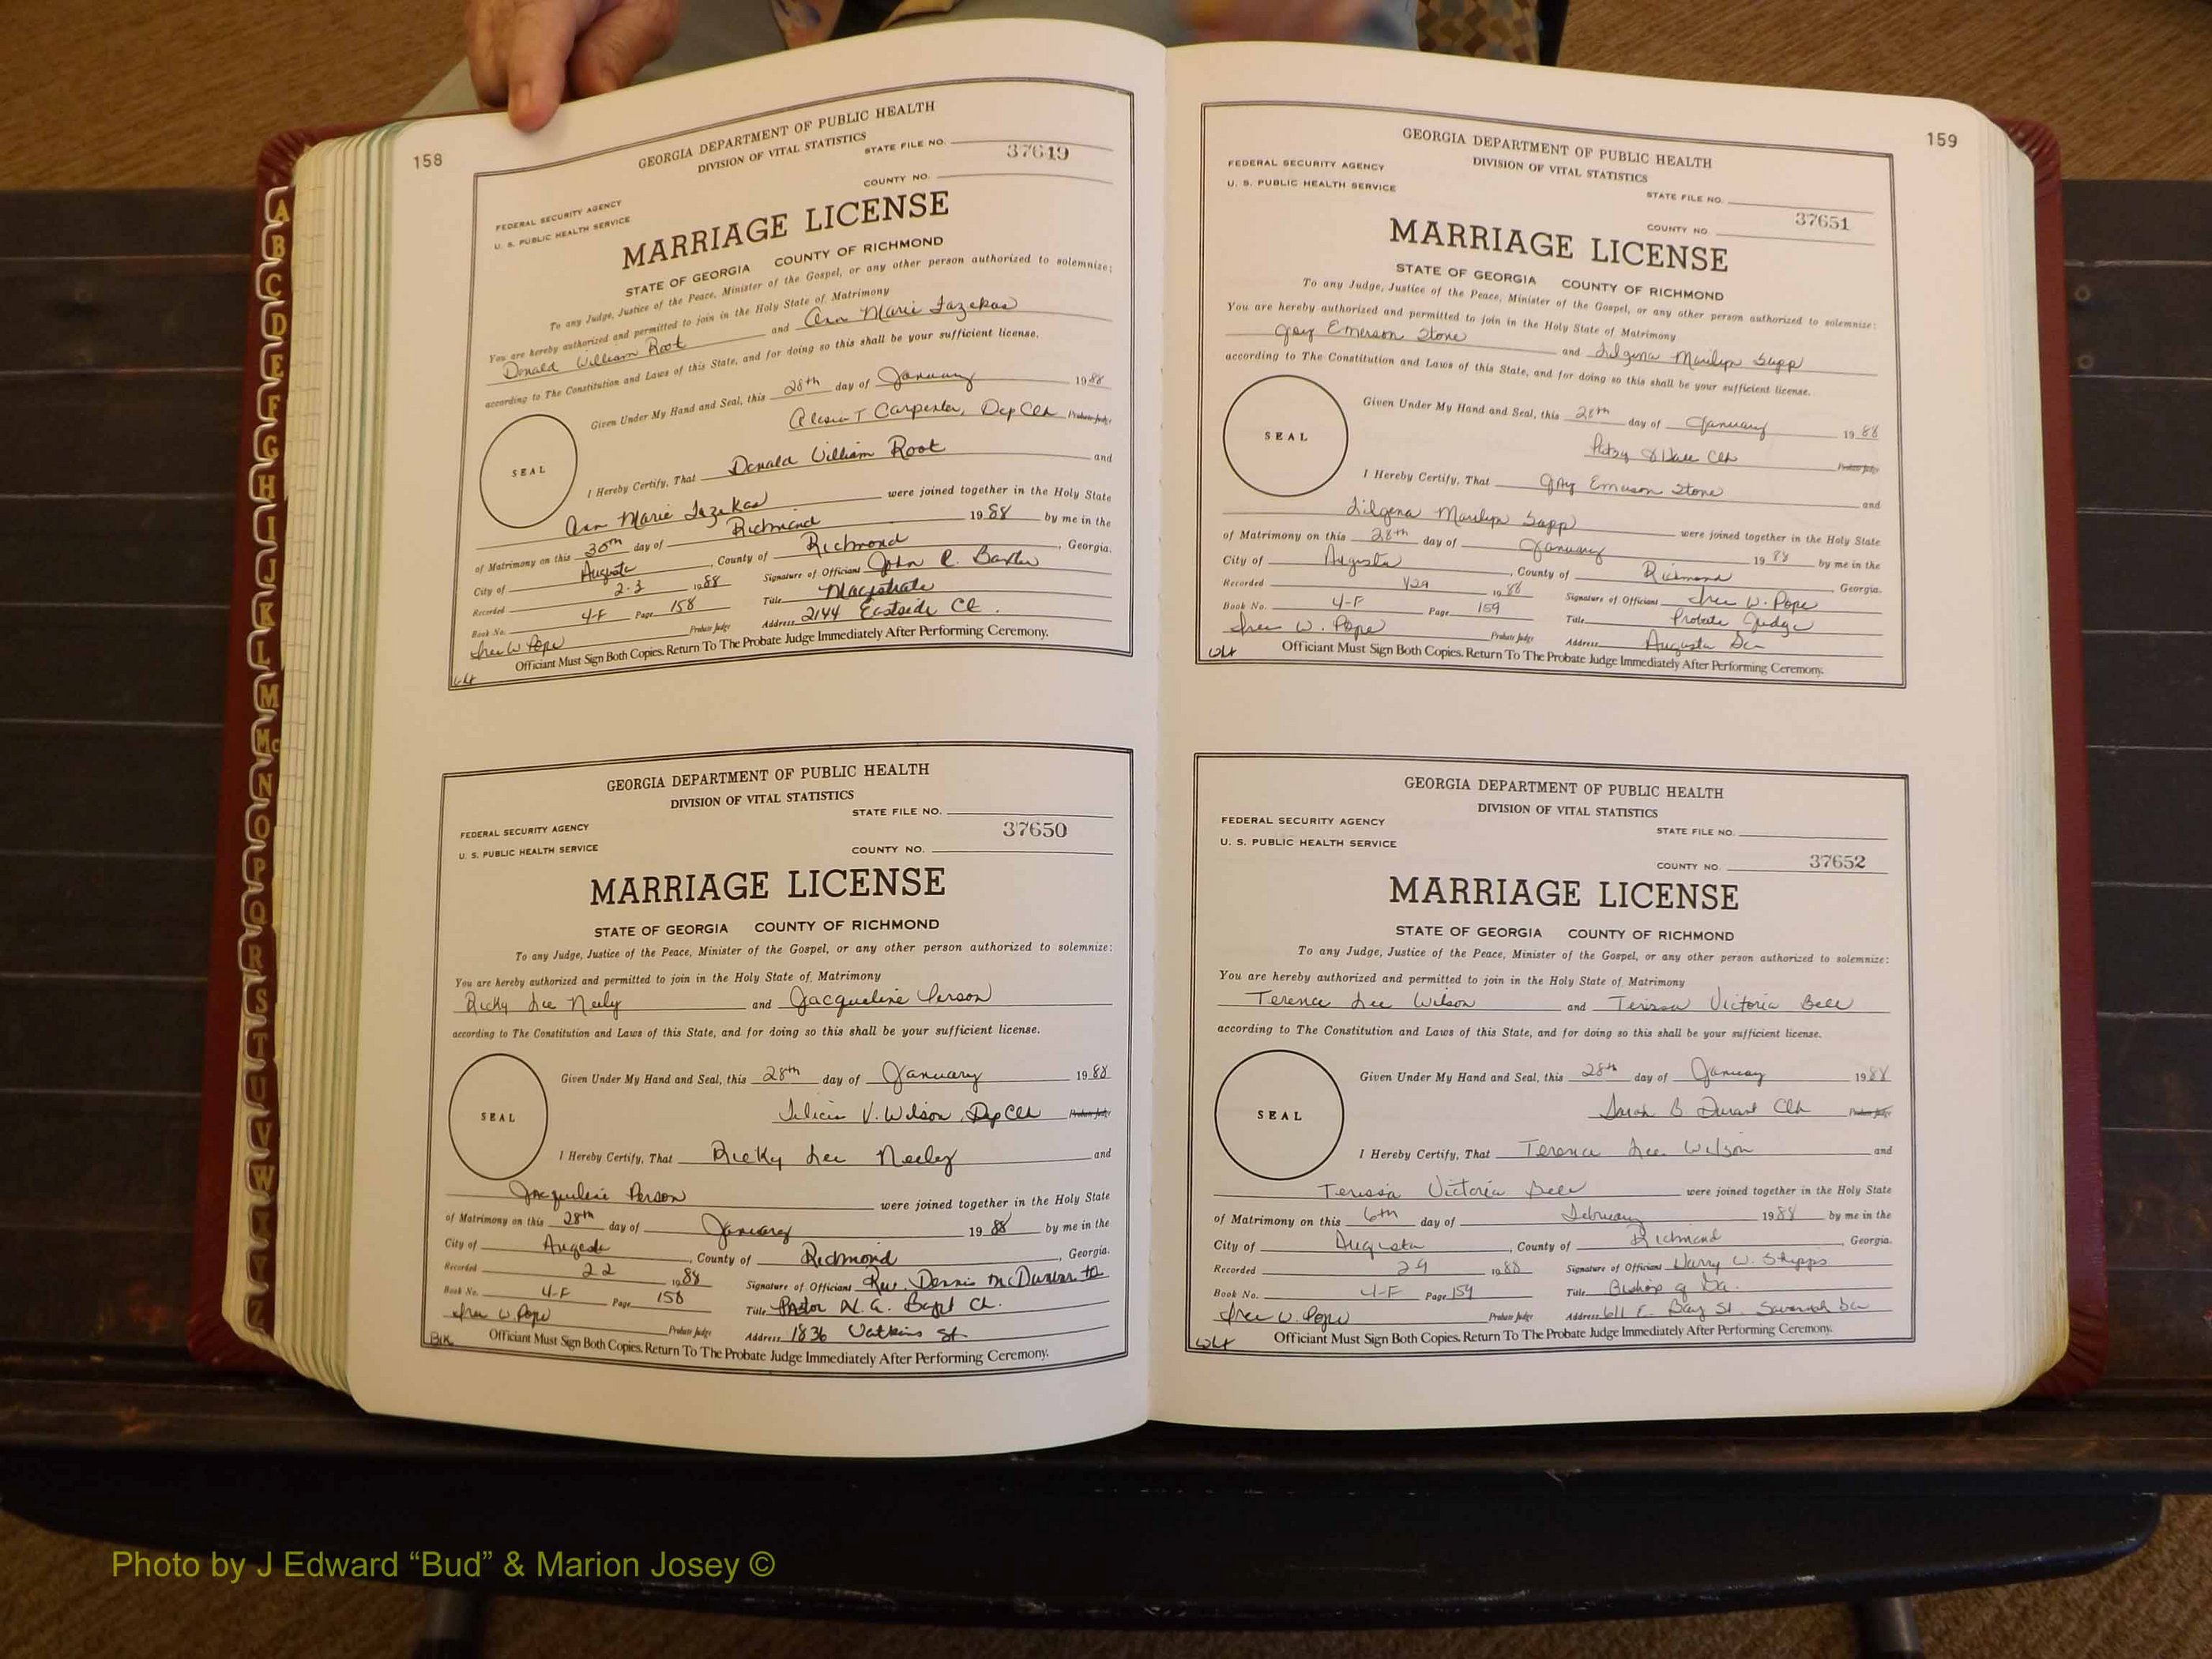 158
GEORGIA DEPARTMENT OF PUBLIC HEALTH
DIVISION OF VITAL STATISTICS
STATE FILE NO.
37649
FEDERAL SECURITY AGENCY
U. S. PUBLIC HEALTH SERVICE
COUNTY NO.
MARRIAGE LICENSE
STATE OF GEORGIA COUNTY OF RICHMOND
To any Judge, Justice of the Peace, Minister of the Gospel, or any other person authorized to solemnize:
You are hereby authorized and permitted to join in the Holy State of Matrimony
Donald William Root and Ann Marie Fazekas
according to The Constitution and Laws of this State, and for doing so this shall be your sufficient license.
Given Under My Hand and Seal, this 28th day of January 1988
SEAL
Carpenter, Dep Clk Probate Judge
I Hereby Certify, That Donald William Root and
Ann Marie Fazekas were joined together in the Holy State
of Matrimony on this 30th day of Richmond 1988 by me in the
City of Augusta, County of Richmond, Georgia.
Recorded 2-3 1988 Signature of Officiant John R. Baxter
Book No. 4-F Page 158 Title Magistrate
W Pope Probate Judge Address 2144 Eastside Ct.
Officiant Must Sign Both Copies. Return To The Probate Judge Immediately After Performing Ceremony.
GEORGIA DEPARTMENT OF PUBLIC HEALTH
DIVISION OF VITAL STATISTICS
STATE FILE NO.
37650
FEDERAL SECURITY AGENCY
U. S. PUBLIC HEALTH SERVICE
COUNTY NO.
MARRIAGE LICENSE
STATE OF GEORGIA COUNTY OF RICHMOND
To any Judge, Justice of the Peace, Minister of the Gospel, or any other person authorized to solemnize:
You are hereby authorized and permitted to join in the Holy State of Matrimony
Ricky Lee Neely and Jacqueline Person
according to The Constitution and Laws of this State, and for doing so this shall be your sufficient license.
Given Under My Hand and Seal, this 28th day of January 1988
SEAL
Felicia V. Wilson, Dep Clk Probate Judge
I Hereby Certify, That Ricky Lee Neeley and
Jacqueline Person were joined together in the Holy State
of Matrimony on this 28th day of January 1988 by me in the
City of Augusta, County of Richmond, Georgia.
Recorded 2 2 1988 Signature of Officiant Rev. Dennis
Book No. 4-F Page 158 Title Pastor Bapt Ch.
W. Pope Probate Judge Address 1836 Watkins St
BLK Officiant Must Sign Both Copies. Return To The Probate Judge Immediately After Performing Ceremony.
159
GEORGIA DEPARTMENT OF PUBLIC HEALTH
DIVISION OF VITAL STATISTICS
FEDERAL SECURITY AGENCY
U. S. PUBLIC HEALTH SERVICE
STATE FILE NO.
37651
COUNTY NO.
MARRIAGE LICENSE
STATE OF GEORGIA COUNTY OF RICHMOND
To any Judge, Justice of the Peace, Minister of the Gospel, or any other person authorized to solemnize:
You are hereby authorized and permitted to join in the Holy State of Matrimony
Emerson Stone and Marilyn Sapp
according to The Constitution and Laws of this State, and for doing so this shall be your sufficient license.
Given Under My Hand and Seal, this 28th day of January 1988
SEAL
Patsy Clk Probate Judge
I Hereby Certify, That Emerson Stone and
Marilyn Sapp were joined together in the Holy State
of Matrimony on this 28th day of January 1988 by me in the
City of Augusta, County of Richmond Georgia.
Recorded 1/29 1988 Signature of Officiant W. Pope
Book No. 4-F Page 159 Title Probate Judge
W. Pope Probate Judge Address Augusta Ga
Wht Officiant Must Sign Both Copies. Return To The Probate Judge Immediately After Performing Ceremony.
GEORGIA DEPARTMENT OF PUBLIC HEALTH
DIVISION OF VITAL STATISTICS
FEDERAL SECURITY AGENCY
U. S. PUBLIC HEALTH SERVICE
STATE FILE NO.
37652
COUNTY NO.
MARRIAGE LICENSE
STATE OF GEORGIA COUNTY OF RICHMOND
To any Judge, Justice of the Peace, Minister of the Gospel, or any other person authorized to solemnize:
You are hereby authorized and permitted to join in the Holy State of Matrimony
Terence Lee Wilson and Terissa Victoria Bell
according to The Constitution and Laws of this State, and for doing so this shall be your sufficient license.
Given Under My Hand and Seal, this 28th day of January 1988
SEAL
Sarah B Durant Clk Probate Judge
I Hereby Certify, That Terence Lee Wilson and
Terissa Victoria Bell were joined together in the Holy State
of Matrimony on this 6th day of February 1988 by me in the
City of Augusta, County of Richmond, Georgia.
Recorded 2 9 1988 Signature of Officiant Harry W. Shipps
Book No. 4-F Page 159 Title Bishop of Ga.
W. Pope Probate Judge Address 611 E. Bay St. Savannah Ga
Wht Officiant Must Sign Both Copies. Return To The Probate Judge Immediately After Performing Ceremony.
A
B
C
D
E
F
G
H
I
J
K
L
M
Mc
N
O
P
Q
R
S
T
U
V
W
X
Y
Z
Photo by J Edward “Bud” & Marion Josey ©